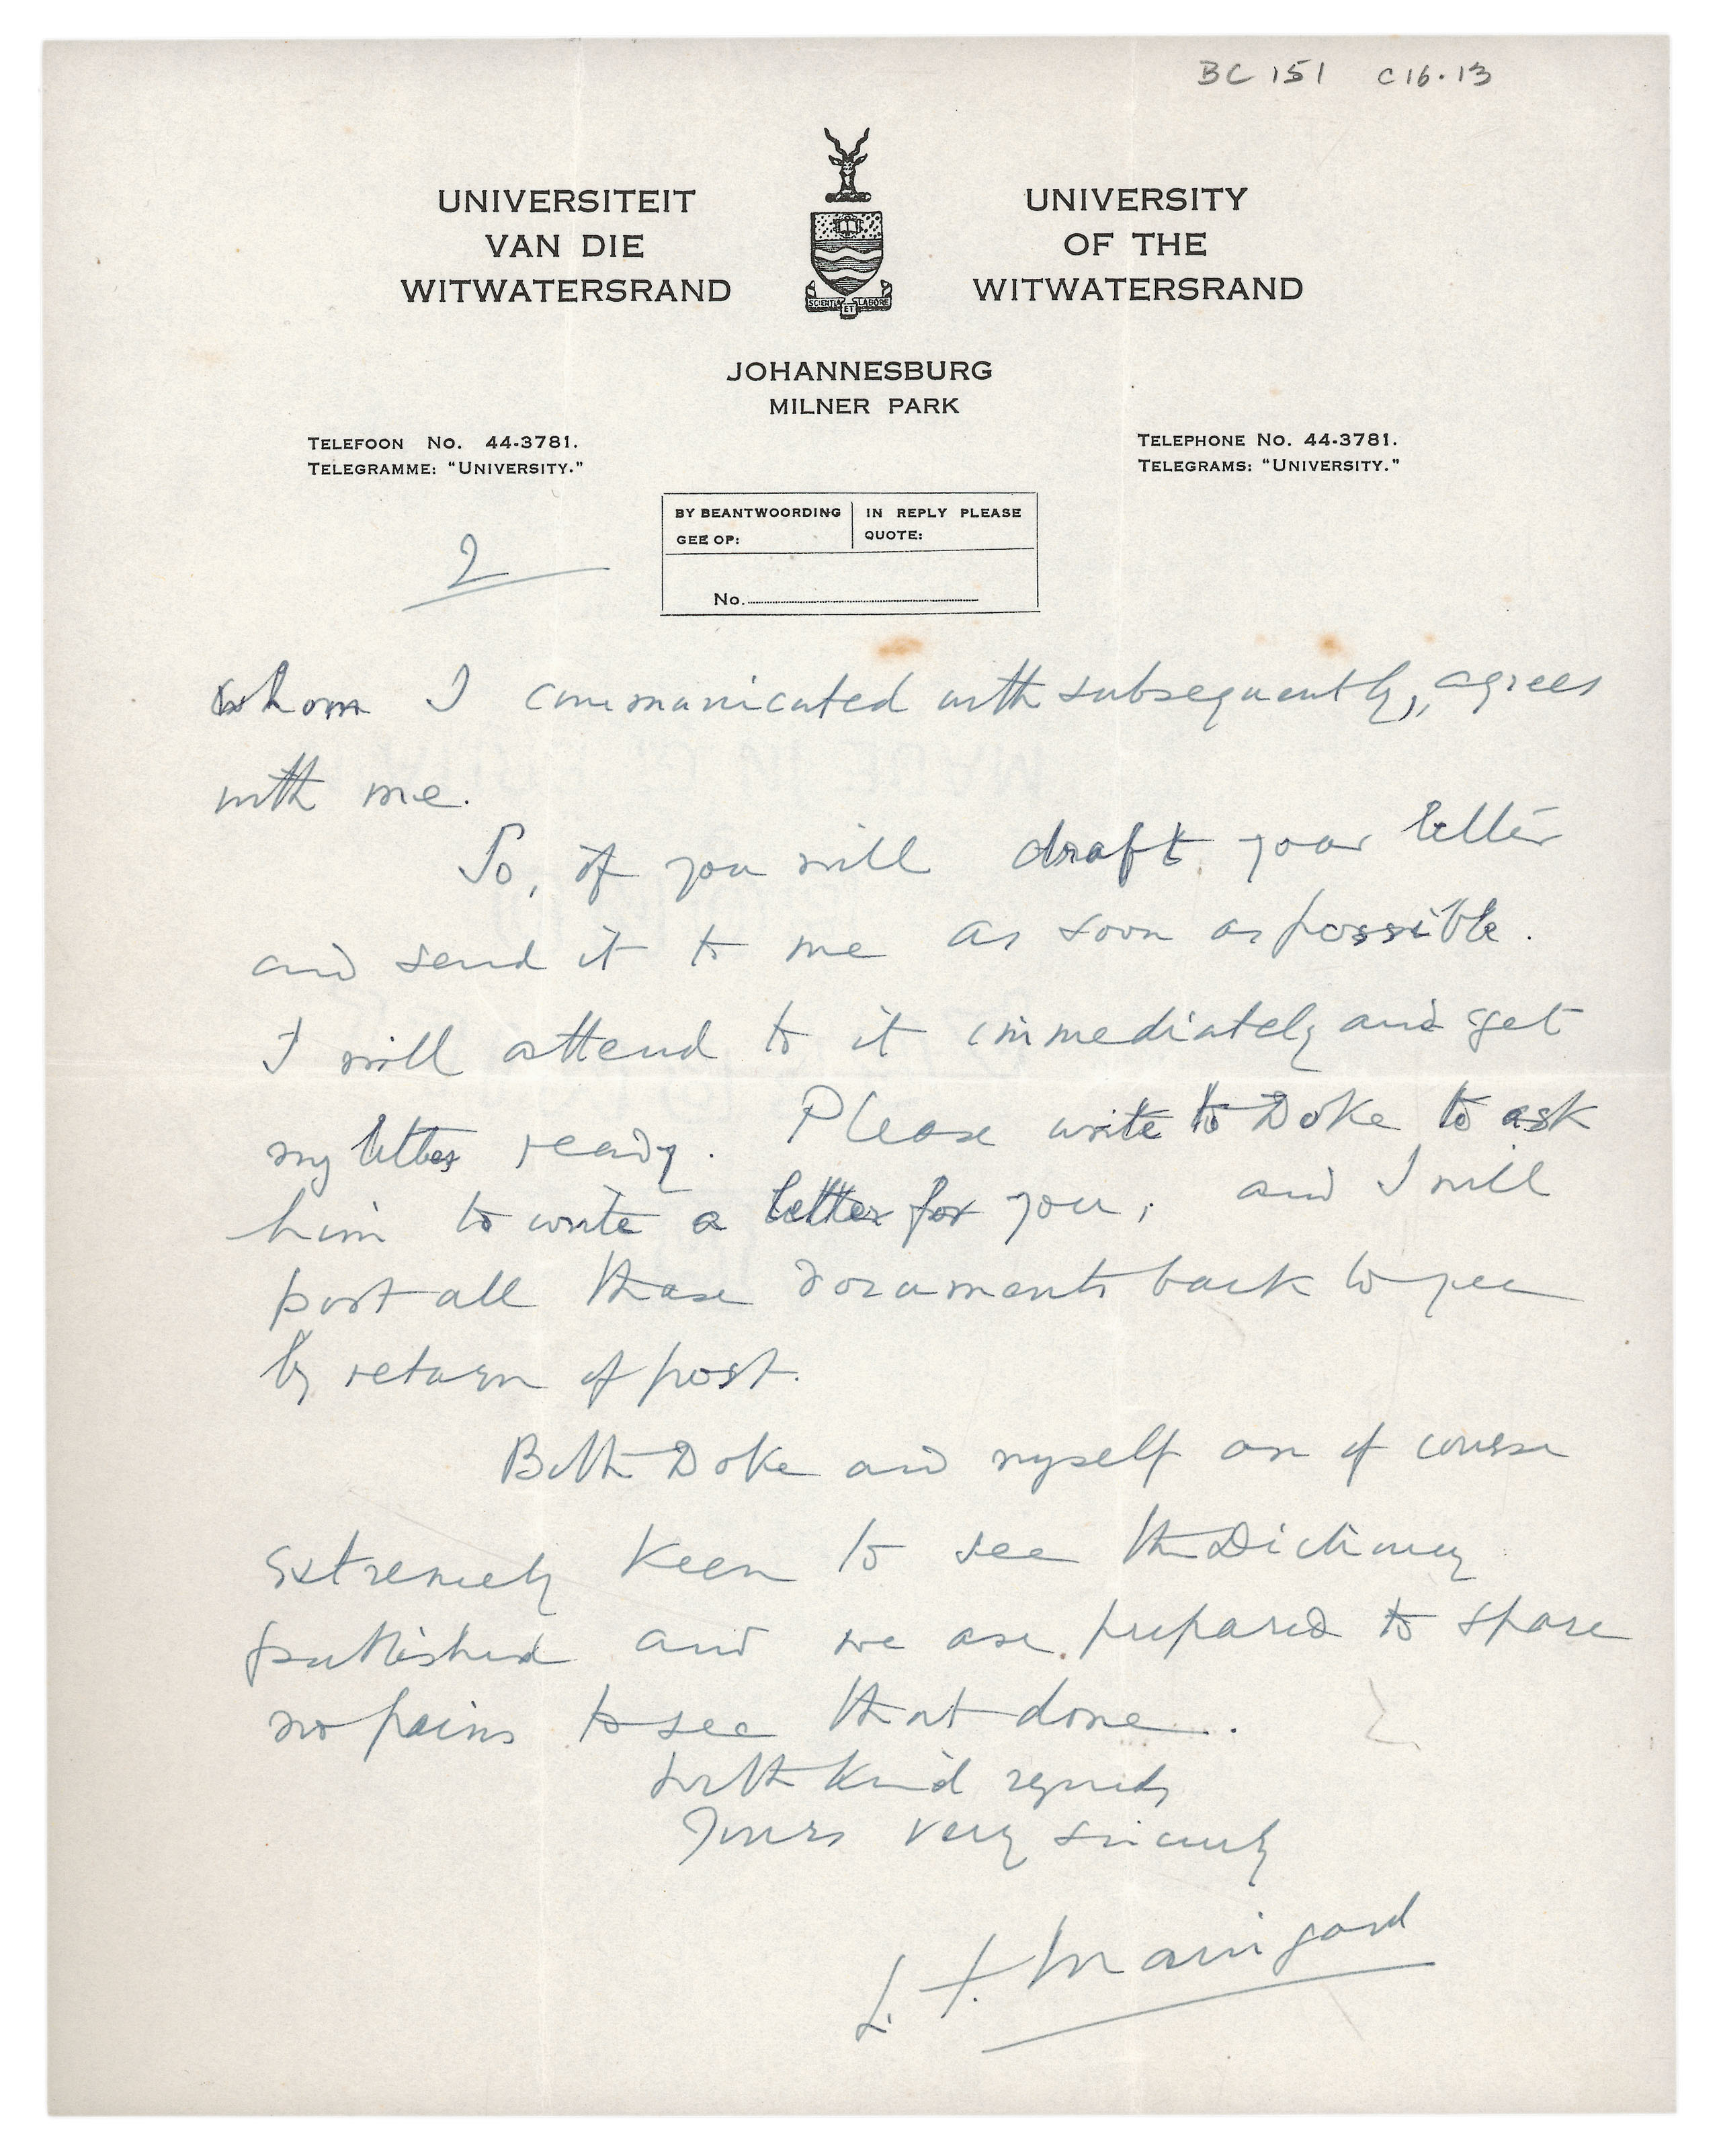 BC 151 C16.13
UNIVERSITEIT
VAN DIE
WITWATERSRAND
UNIVERSITY
OF THE
WITWATERSRAND
SCIENTIA ET LABORE
JOHANNESBURG
MILNER PARK
TELEFOON No. 44-3781.
TELEGRAMME: "UNIVERSITY."
TELEPHONE No. 44-3781.
TELEGRAMS: "UNIVERSITY."
BY BEANTWOORDING
GEE OP:
IN REPLY PLEASE
QUOTE:
No.
2
whom I communicated with subsequently, agrees
with me.
So, if you will draft your letter
and send it to me as soon as possible.
I will attend to it immediately and get
my letter ready. Please write to Doke to ask
him to write a letter for you, and I will
post all these documents back to you
by return of post.
Both Doke and myself are of course
extremely keen to see the Dictionary
published and we are prepared to spare
no pains to see that done.
With kind regards
Yours very sincerely
L. F. Maingard